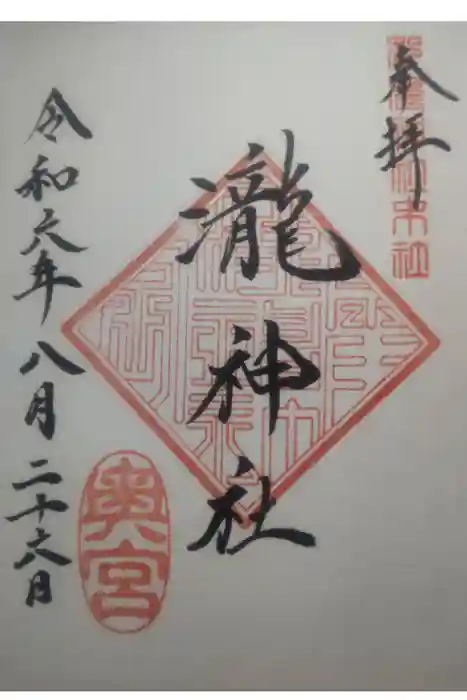 奉拝
瀧神社
令和六年八月二十六日
奥宮